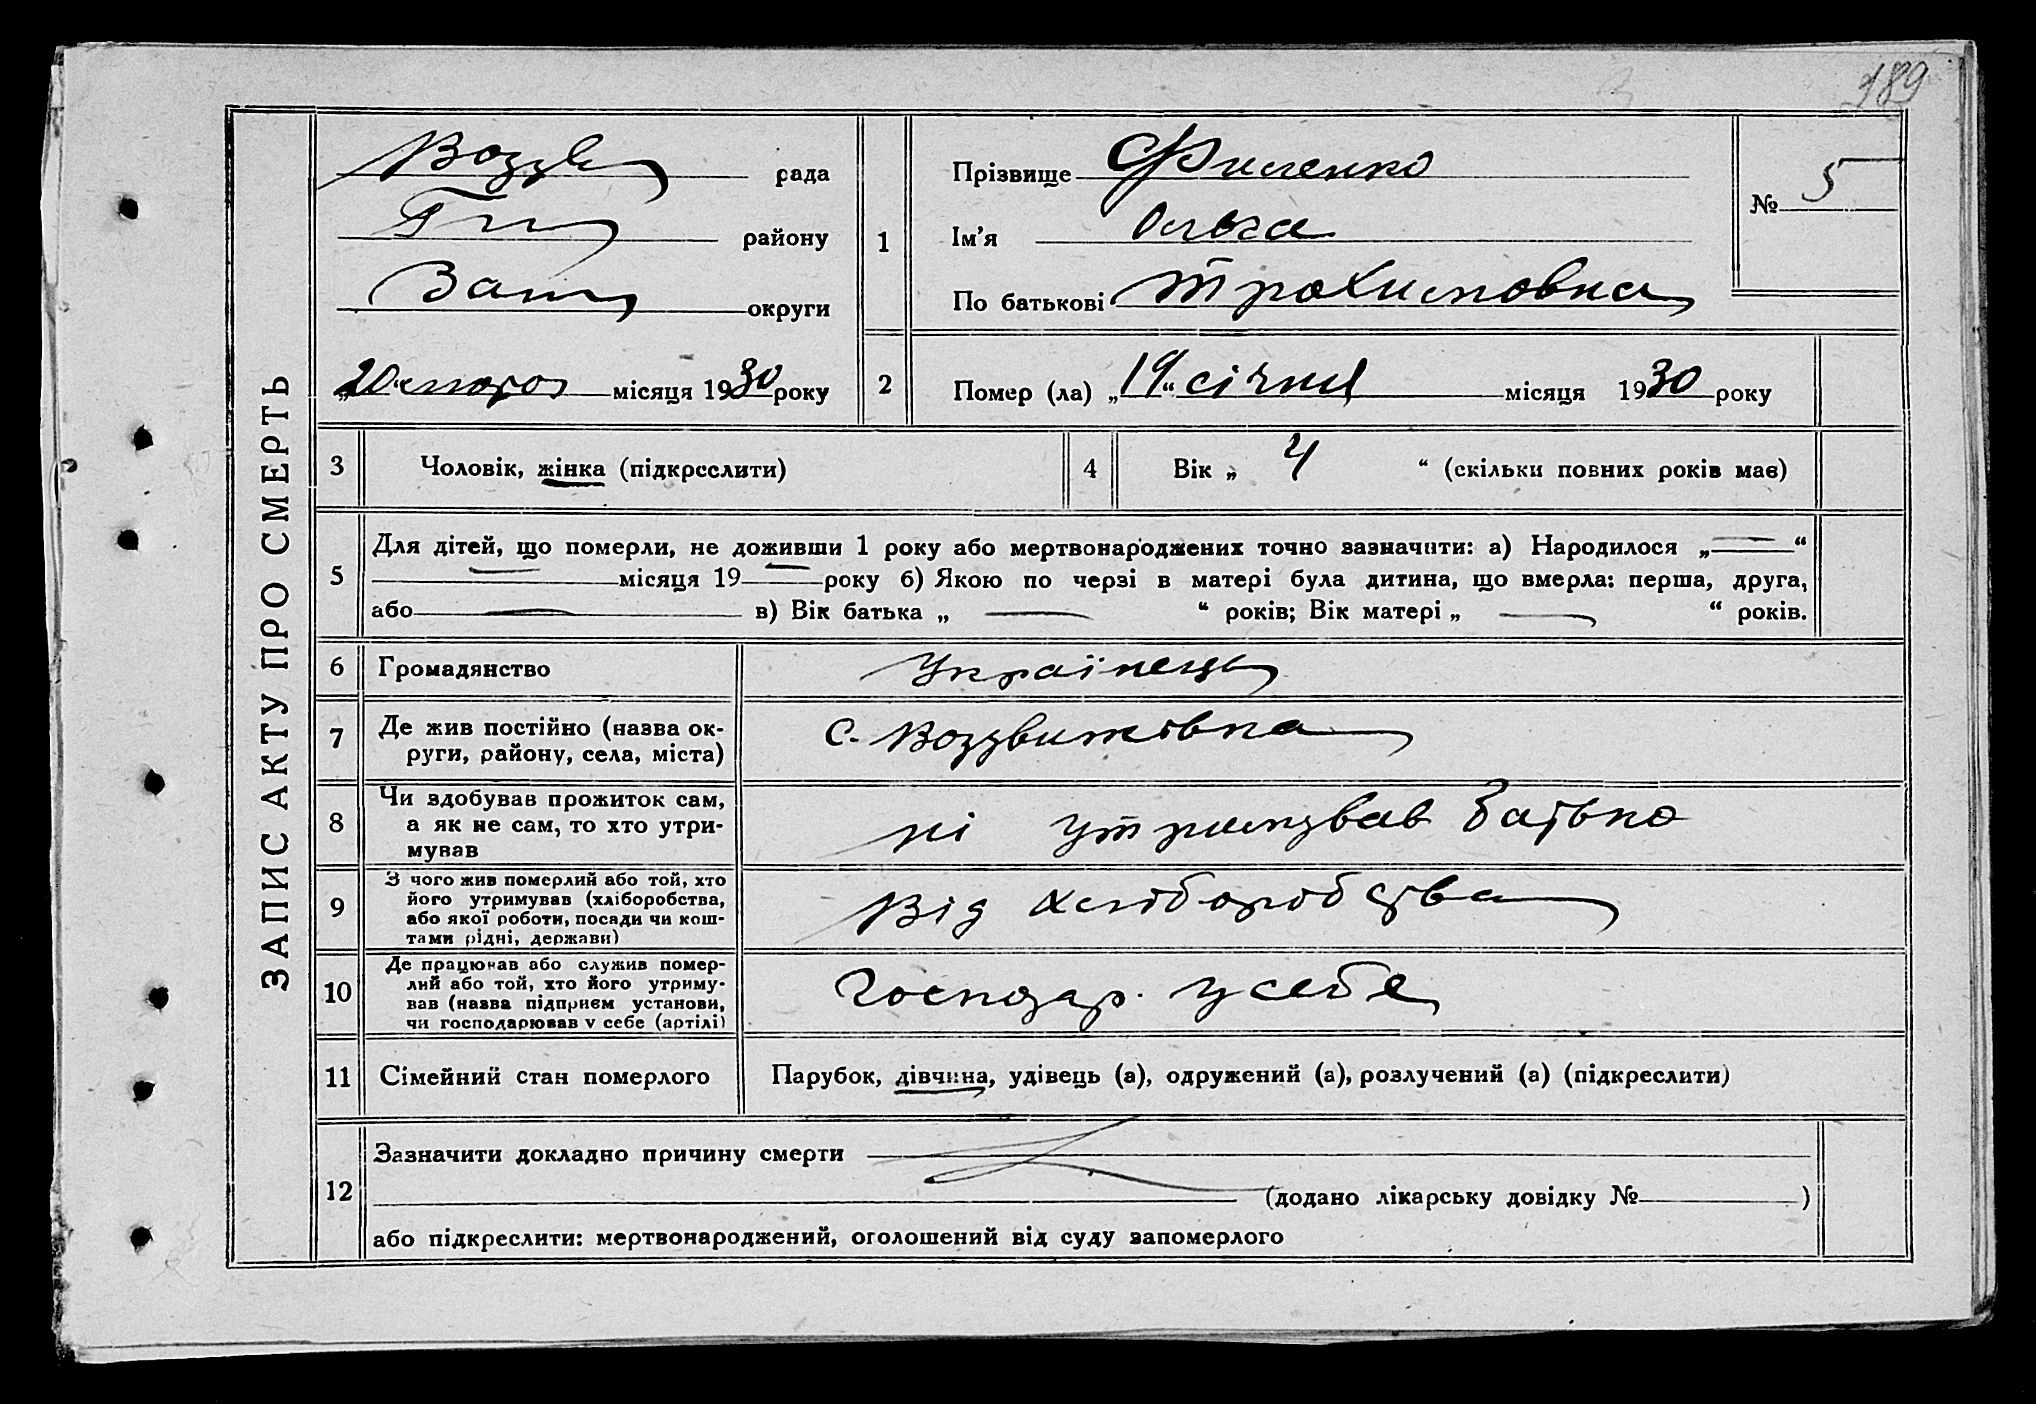 189
ЗАПИС АКТУ ПРО СМЕРТЬ
Воздв рада
району
округи
„20“ лютого місяця 1930 року
1
Прізвище Филенко
Ім'я Ольга
По батькові Трохимовна
№ 5
2
Помер (ла) „19“ січня місяця 1930 року
3
Чоловік, жінка (підкреслити)
4
Вік „ 4 “ (скільки повних років має)
5
Для дітей, що померли, не доживши 1 року або мертвонароджених точно зазначити: а) Народилося „—“
— місяця 19 — року б) Якою по черзі в матері була дитина, що вмерла: перша, друга,
або — в) Вік батька „ — “ років; Вік матері „ — “ років.
6
Громадянство
Українець
7
Де жив постійно (назва ок-
руги, району, села, міста)
с. Воздвижівка
8
Чи здобував прожиток сам,
а як не сам, то хто утри-
мував
ні утримував батько
9
З чого жив померлий або той, хто
його утримував (хліборобства,
або якої роботи, посади чи кош-
тами рідні, держави)
Від хліборобства
10
Де працював або служив помер-
лий або той, хто його утриму-
вав (назва підприєм установи,
чи господарював у себе (артілі)
Господар. у себе
11
Сімейний стан померлого
Парубок, дівчина, удівець (а), одружений (а), розлучений (а) (підкреслити)
12
Зазначити докладно причину смерти
(додано лікарську довідку № )
або підкреслити: мертвонароджений, оголошений від суду запомерлого